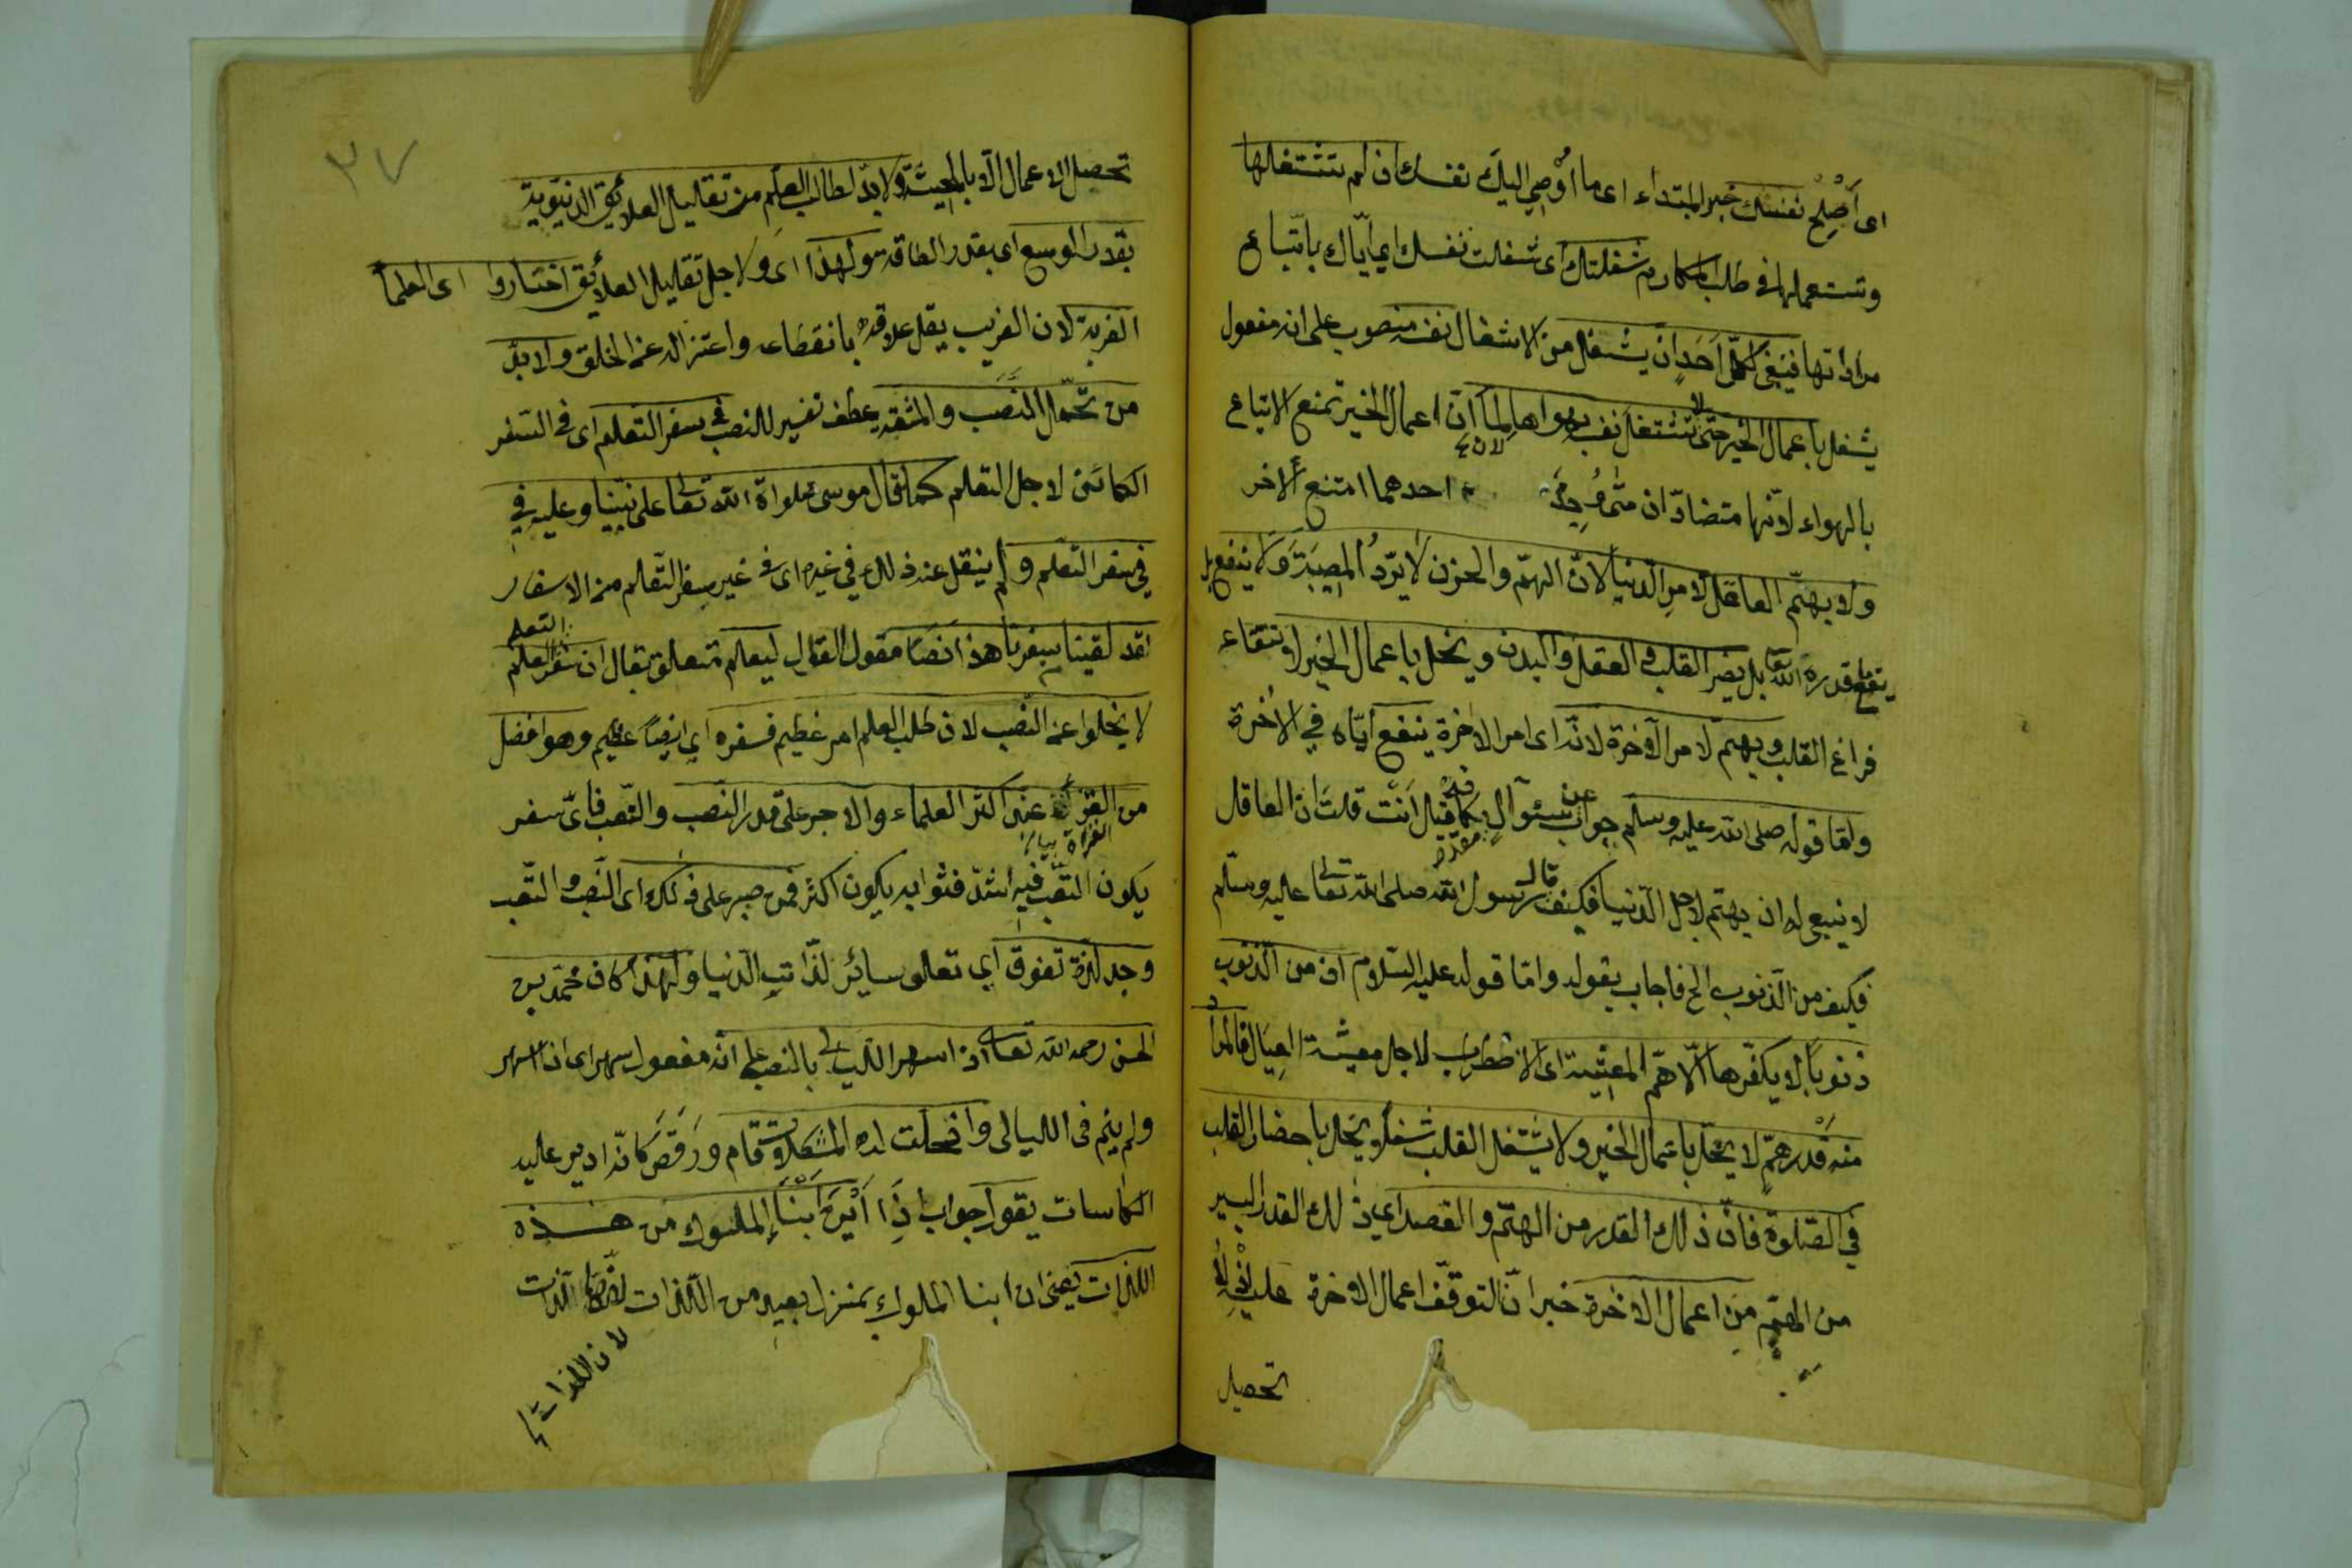 اى أَصْلِحْ نفسَك خبر المبتداء اى ما أُوْصِى اليكَ نفسك ان لم تشتغلها
وتستعملها فى طلب المكارم شغلتك اى شغلت نفسك اى ايّاك باتّباع
مراداتها فينبغى لكلّ اَحَدٍ ان يشغل من الاشغال نفسه منصوب على انه مفعول
يشغل باعمال الخير حتّى لا تشتغل نفسه بهواها لما انّ اعمال الخير تمنع الاتباع
بالهواء لانّهما متضادّان متى وُجِدَ احدهما امتنع الاخر
ولا يهتمّ العاقل لامرِ الدّنيا لانّ الهمّ والحزن لا يَرُدُّ المصيبَةَ وَلا ينفع بل
قدرة الله تعا بل يضر القلب و العقل والبدن و يخل باعمال الخير لانتفاء
فراغ القلب ويهتمّ لامر الآخرة لانّه اى امر الاخرة ينفع ايّاه فى الاخرة
وامّا قوله صلى الله عليه وسلم جواب عن سئوال مقدّر كما قيل اَنْتَ قلتَ انّ العاقل
لا ينبغى له ان يهتمّ لاجل الدّنيا فكيف قال رسول الله صلى الله تعا عليه وسلّم
فكيف من الذّنوب الخ فاجاب بقوله وامّا قوله عليه السّلام ان من الذّنوب
ذنوبًا لا يكفّرها الّا همّ المعيشة اى الاضطراب لاجل معيشة العِيَال فالمراد
منه قَدْر همٍّ لا يخلّ باعمال الخير ولا يشتغل القلب شغلًا يخلّ باحضار القلب
فى الصّلوة فانّ ذلك القدر من الهمّ و القصد اى ذلك القدر اليسير
من الهمّ من اعمال الاخرة خبر انّ لتوقّف اعمال الاخرة عليه
تحصيل
٣٧
تحصيل الاعمال الّا بالمعيشة ولابدّ لطالب العلم من تقليل العلائق الدنيوية
بقدر الوسع اى بقدر الطاقة ولهذا اى ولاجل تقليل العلائق اختاروا اى العلماء
الغربة لان الغريب يقل علاقته بانقطاعه واعتزاله عن الخلق ولابدّ
من تحمّل النَّصَب والمشقة عطف تفسير للنصب فى سفر التعلم اى فى السّفر
الكائن لاجل التعلم كما قال موسى صلواة الله تعا على نبيّنا وعليه فى
فى سفر التّعلم ولم ينقل عنه ذلك فى غيره اى فى غير سفر التّعلم من الاسفار
لقد لقينا من سفرنا هذا نصبًا مقول القول ليعلم متعلق بقال ان سفر العلم
التعلم
لا يخلوا عن النّصب لان طلب العلم امر عظيم فسفره اى ايضًا عظيم وهو افضل
من الغزاة عند اكثر العلماء والاجر على قدر النّصب والتّعب فاىّ سفر
يكون التّعب فيه اشدّ فثوابه يكون اكثر فمن صبر على ذلك اى النّصب و التّعب
وجد لذّة تفوق اى تعلو سائر لذّات الدّنيا ولهذا كان محمّد بن
الحسن رحمه الله تعا اذا سهر اللّيالى بالنصب على انّه مفعول سهر اى اذا سهر
ولم ينم فى الليالى وانحلّت له المشكلات قام ورَقَصَ كانّه ادير عليه
الكاسات يقول جواب اذا اَيْنَ اَبْنَاءُ الملوك من هذه
اللذات يعنى ان ابنا الملوك بمنزل بعيد من اللّذات
لان اللذات